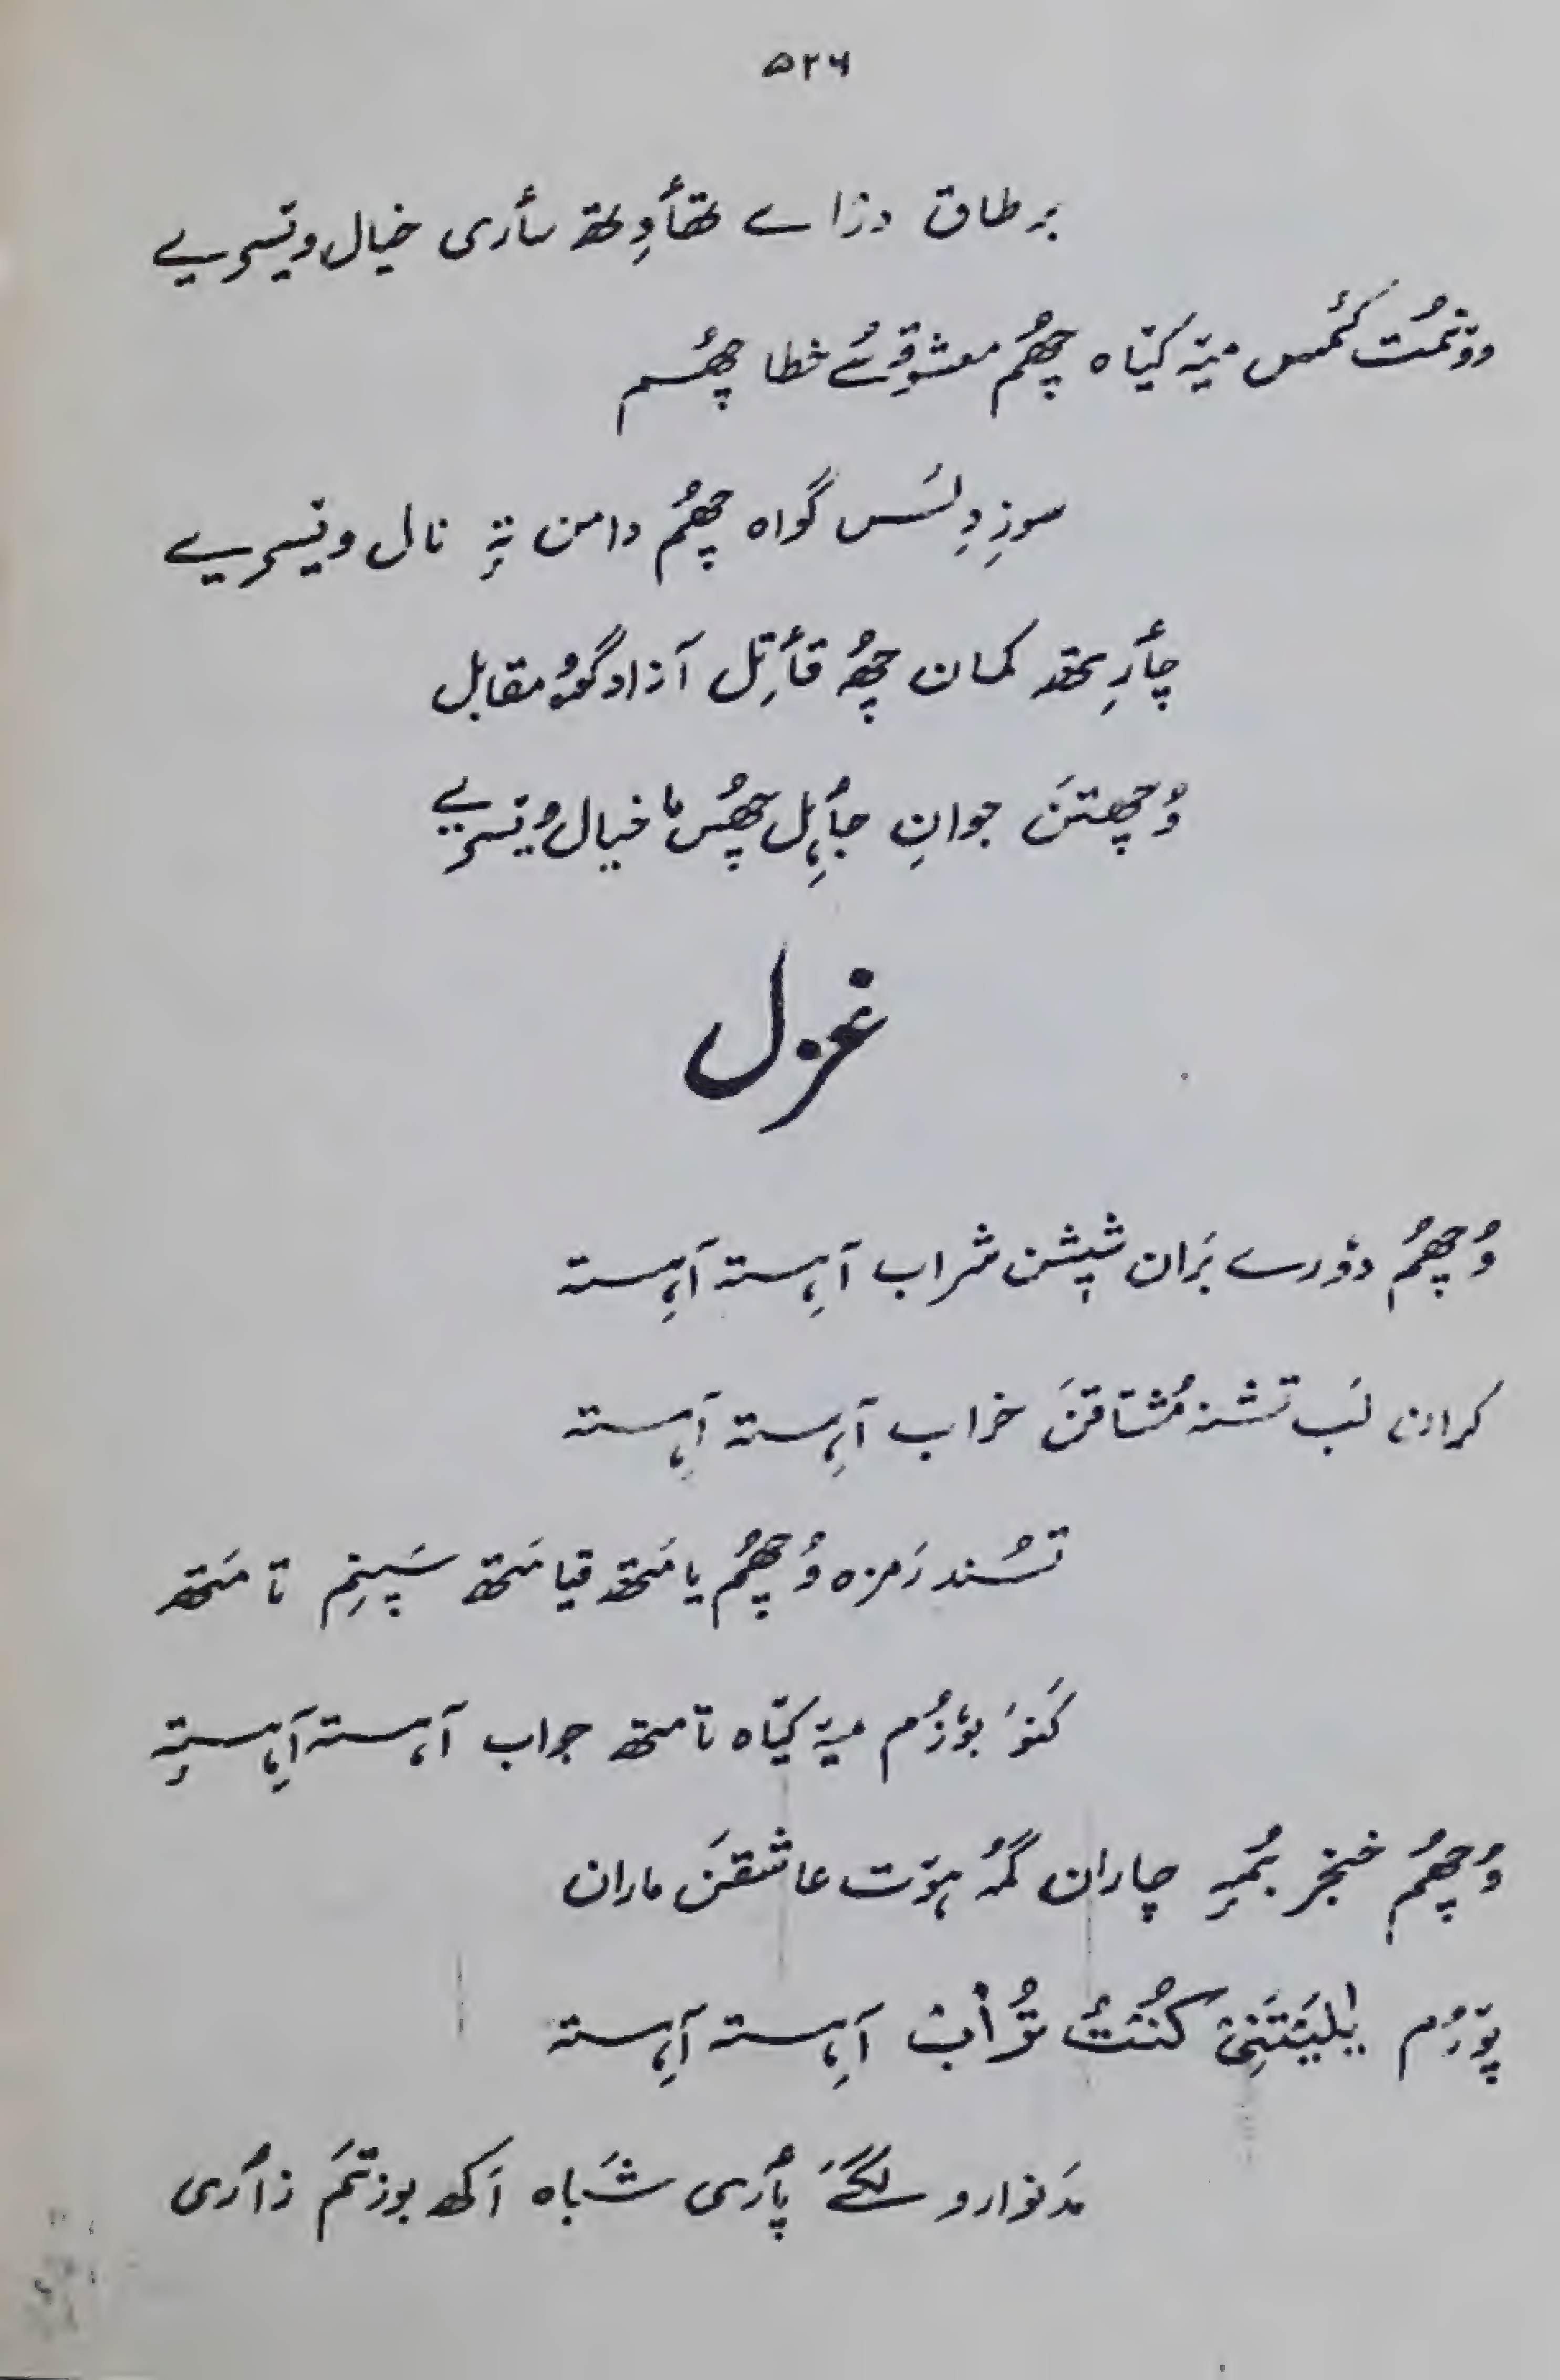 ۵۲۶
بر طاق دزاے تھٲوِتھ سٲری خیال ویسریے
وۆنمُت کٔمس میہٕ کیٛاہ چھُم معشوقہٕ خطا چھُم
سوزِ دِلَس گواہ چھُم دامن تہٕ نال ویسریے
چٲرِتھ کمان چھُ قٲتِل آزاد گوٚو مقابل
وُچھتن جوانِ جٲہِل چھُس نا خیال ویسریے
غزل
وُچھُم دۆرے بَران شیشن شراب آہستہ آہستہ
کران لَب تشنہ مُشتاقنَ خراب آہستہ آہستہ
تسُند رَمزہ وُچھُم یامَتھ قیامَتھ سَپنِم تامَتھ
کَنوَ بوٗزُم میہٕ کیٛاہ تامتھ جواب آہستہ آہستہٕ
وُچھُم خنجر بُمہٕ چاران گمُہ ہیٚت عاشقنَ ماران
پوٚرُم یٰلَیتَنِیْ کُنْتُ تُرٰابْ آہستہ آہستہ
مَدنوارو لگَےَ پٲری شَباہ اَکھ بوزتَم زٲری